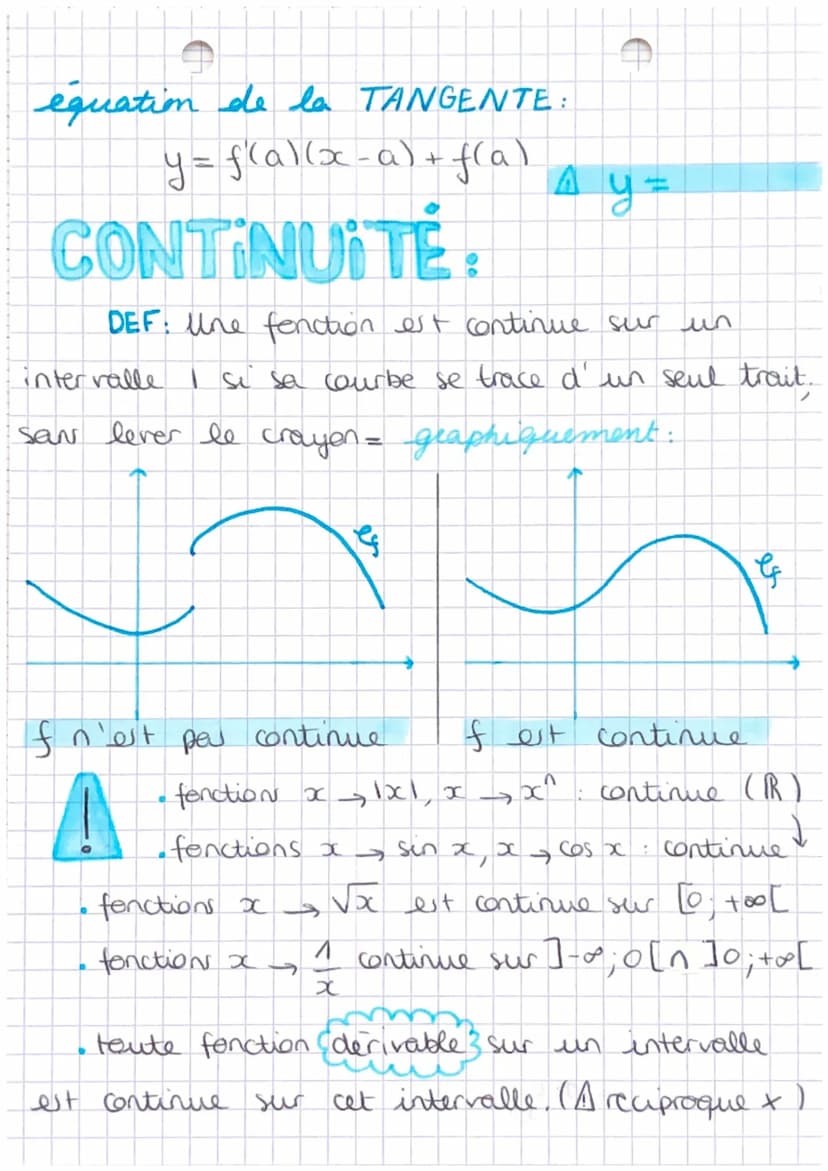 équation de la TANGENTE :
y = f'(a)(x - a) + f(a)
⚠ y =
CONTINUITÉ :
DEF : Une fonction est continue sur un
intervalle I si sa courbe se trace d'un seul trait,
sans lever le crayon = graphiquement :
Cf
Cf
f n'est pas continue
f est continue
! • fonction x → |x|, x → xⁿ : continue (ℝ)
• fonctions x → sin x, x → cos x : continue ↓
• fonctions x → √x est continue sur [0 ; +∞[
• fonction x → 1/x continue sur ]-∞ ; 0[ ∩ ]0 ; +∞[
• toute fonction dérivable sur un intervalle
est continue sur cet intervalle. (⚠ réciproque x)